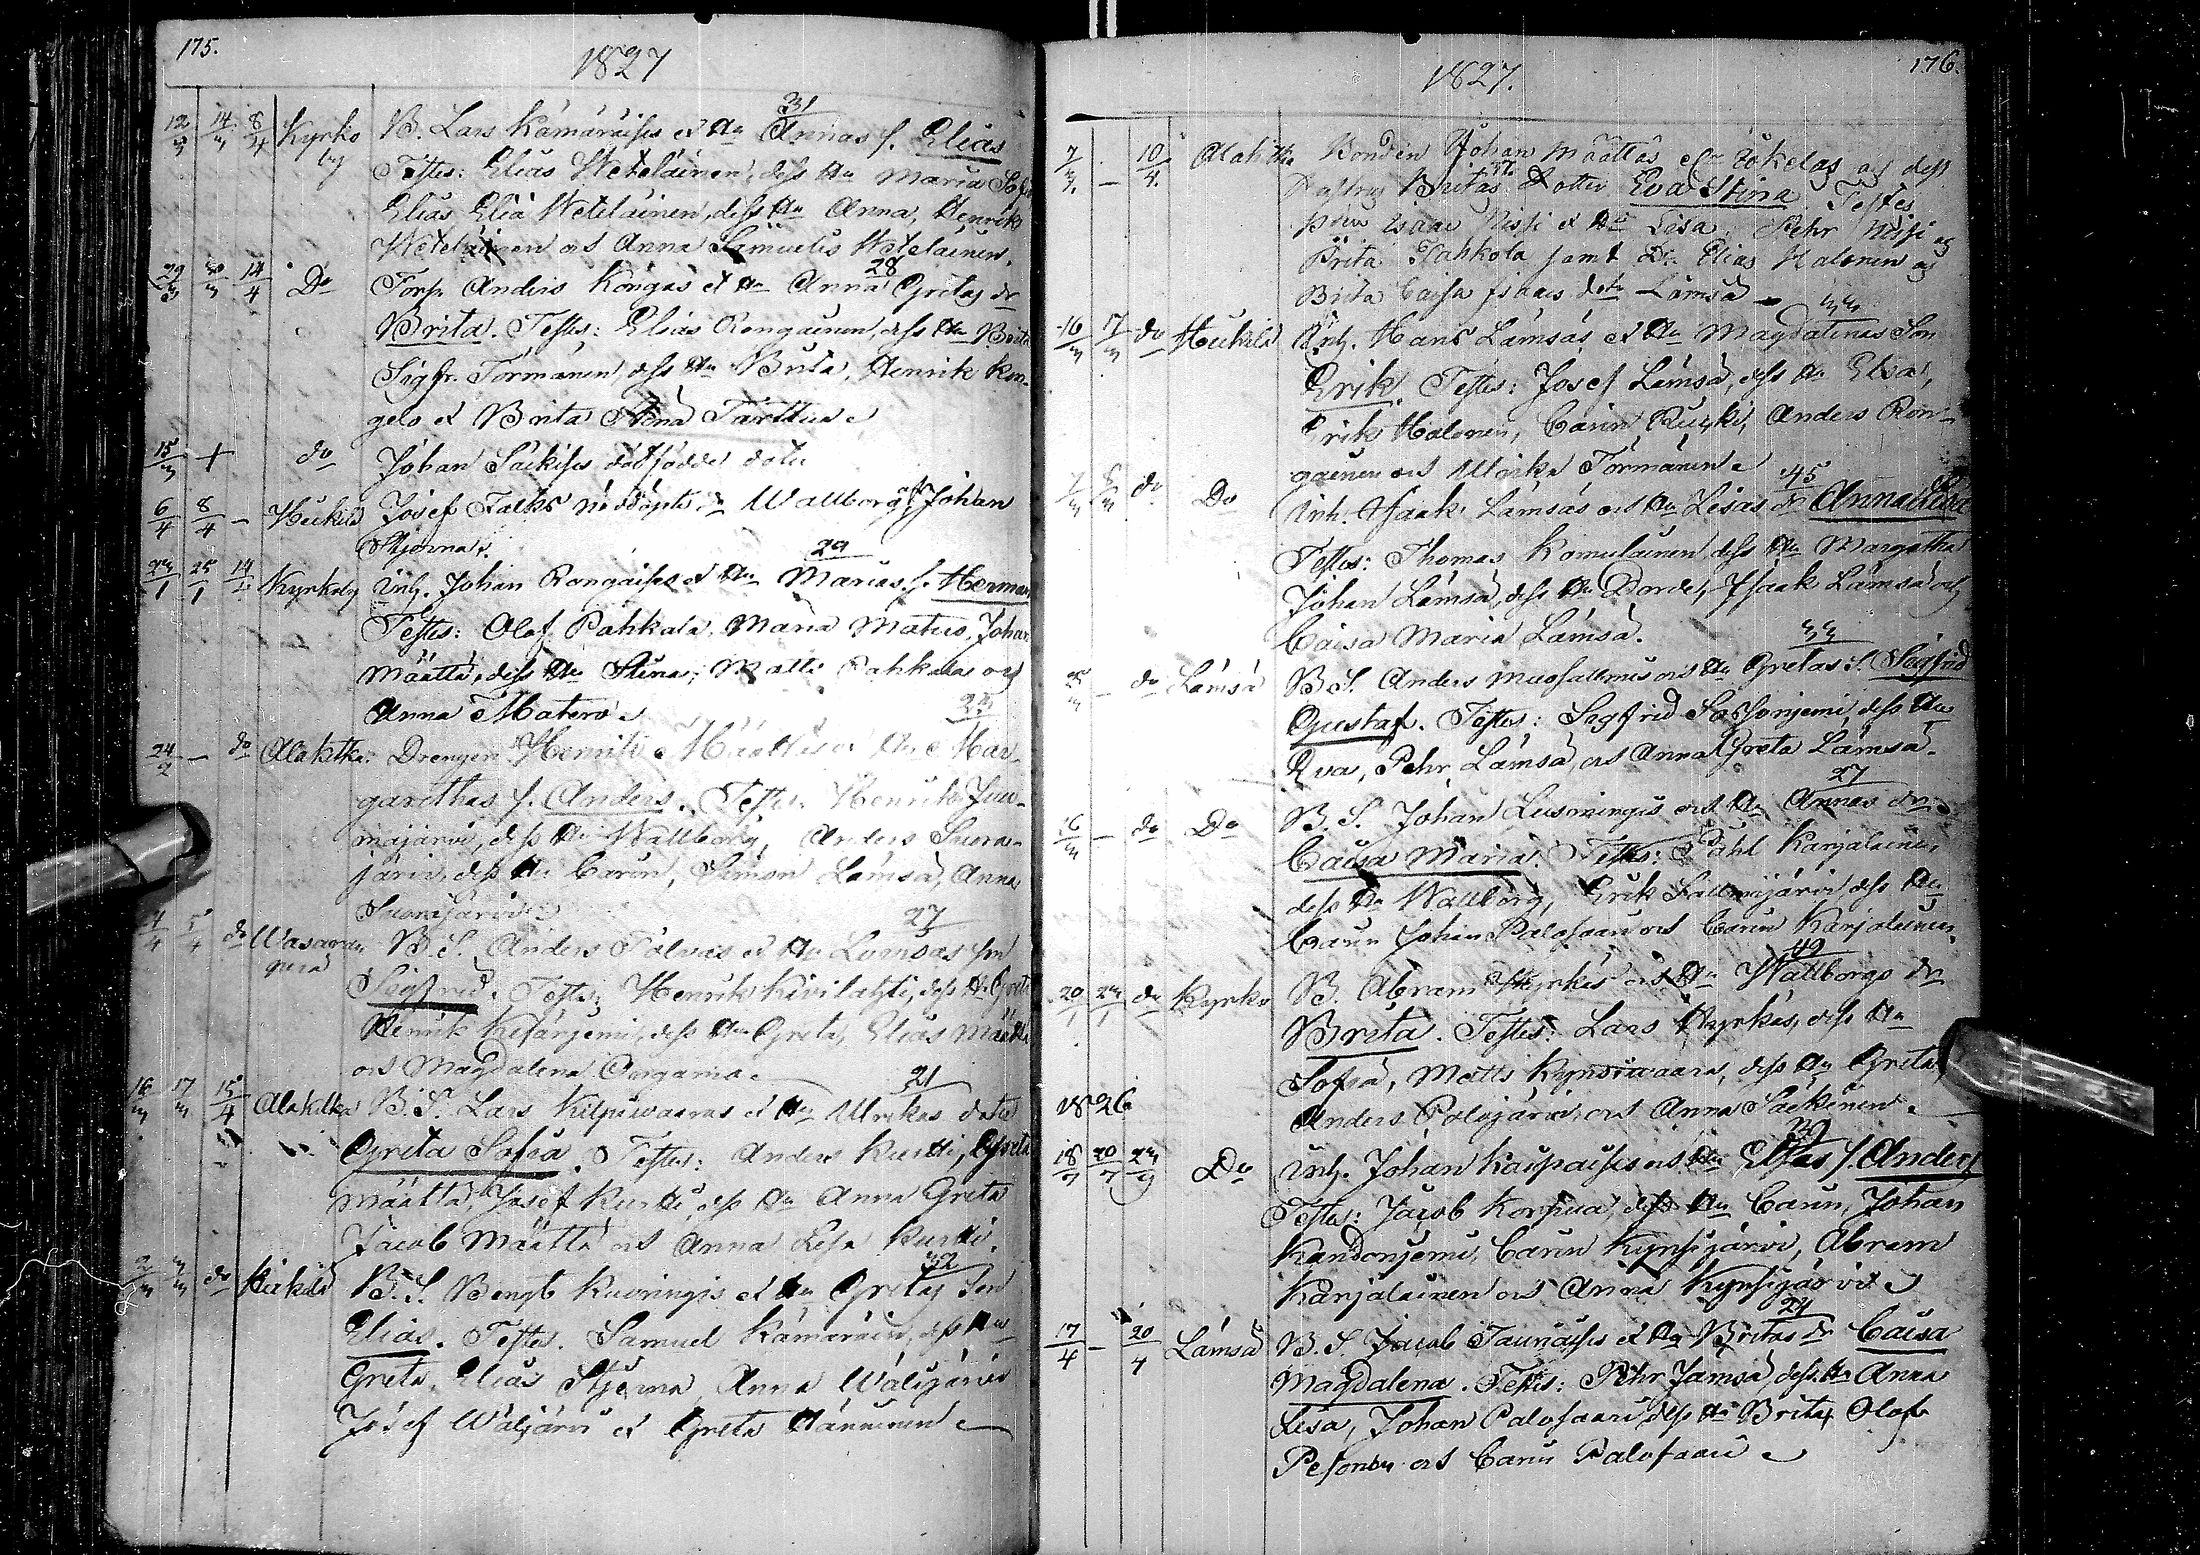 175.
1827
31
12/3 14/3 8/4 Kyrko B. Lars Kämäräises et Hu Annas s. Elias
by Testes: Elias Weteläinen, dess Hu Maria Sofia
Elias Elia Weteläinen, dess Hu Anna, Henrik
Wetelainen och Anna Samuelis Wetelainen.
28
29/3 30/3 14/4 Do Torp. Anders Kongas et Hu Anna Gretas dr
Brita. Testes: Elias Rongainen, dess Hu Brita
Sigfr. Törmänen, dess Hu Brita, Henrik Kon-
gelo et Brita Stena
15/3 + do Johan Säckises dödfödde doter
6/4 8/4 - Heikilä Josef Falks nöddöpte Wallborg Johan
Stjerna.
29
23/1 25/1 14/ Kyrkoby Inh. Johan Rongaises et Hu Marias s. Herman
Testes: Olof Pahkala, Maria Matero, Johan
Määttä, dess Hu Stina, Matts Pahkala och
Anna Matero
23
24/2 - do Alakitka Drengen Henrik Määttäs et Hu Mar-
garethas s. Anders. Testes: Henrik Juu-
majärvi, dess Hu Wallborg, Anders Suora-
järvi, dess Hu Carin, Simon Lämsä, Anna
Suorajärvi
27
4/4 5/4 do Wasaran B. S. Anders Tolvas et Hu Lovisas son
perä Sigfred. Testes: Henrik Kivilahti, dess Hu Greta
Henrik Kesäniemi, dess Hu Greta, Elias Määttä
och Magdalena
21
16/3 17/3 15/4 Alakitka B. S. Lars Kilpiwaaras et Hu Ulrikas doter
Greta Sofia. Testes: Anders Kurtti, Greta
Määttä, Josef Kurtti, dess Hu Anna Greta
Jacob Määttä och Anna Lisa Kurtti.
32
2/3 3/3 do Heikilä B. S. Bengt Kuoringis et Hu Gretas son
Elias. Testes. Samuel Kämäräin, dess Hu
Greta, Elias Stjerna, Anna Wäljärvi
Josef Wäljärvi et Greta Hänninen
176.
1827.
7/3. - 10/4. Alakitka Bonden Johan Määttäs och dess
Hustrus Britas Dotter Eva Stina Testes
Isaac Nissi et Hu Lisa, Pehr Nissi og
Brita Pahkola samt Elias Halonen og
Brita Caisa Isaacs dotr Lämsä
33
16/3 17/3 do Heikilä Inh. Hans Lämsäs et Hu Magdalenas Son
Erik. Testes: Josef Lämsä, dess Hu Elsa,
Erik Halonen, Carin Kuski, Anders Ron-
gainen och Ulrika Törmänen
45
7/3 8/3 do Do Inh. Isaak Lämsäs och Hu Lisas dr Anna
Testes: Thomas Romulainen dess Hu Margetha
Johan Lämsä, dess Hu Dorde, Isaak Lämsä och
Caisa Maria Lämsä.
33
25/3 - do Lämsä B. S. Anders Muosalmis och Hu Gretas S. Sigfrid
Gustaf. Testes: Sigfrid dess Hu
Eva, Pehr Lämsä, och Anna Greta Lämsä.
27
16/3 - do Do B. S. Johan Lusmingis och Hu Annas dr
Caisa Maria. Testes: Påhl Karjalainen,
dess Hu Wallborg, Erik Salmijärvi dess Hu
Carin Johan Palosaari och Carin Karjalainen.
42
20/1 23/1 do Kyrko B. Abram Hyrkäs och Hu Wallborgs dr
Brita. Testes: Lars Hyrkäs, dess Hu
Sofia, Matts Kynsiwaara, dess Hu Greta
Anders Polojärvi, och Anna Säckinen.
1826
18/7 20/7 23/9 Do Inh. Johan Karpaises och Hu Elsas s. Anders
Testes: Jacob Korpua, dess Hu Carin, Johan
Karjoniemi, Carin Kynsijärvi, Abram
Karjalainen och Anna Kynsijärvi
24
17/4 - 20/4 Lämsä B. S. Jacob Tauriaises et Hu Britas dr Caisa
Magdalena. Testes: Pehr Jämsä, dess Hu Anna
Lisa, Johan Palosaari, dess Hu Brita, Olof
Pesonen och Carin Palosaari